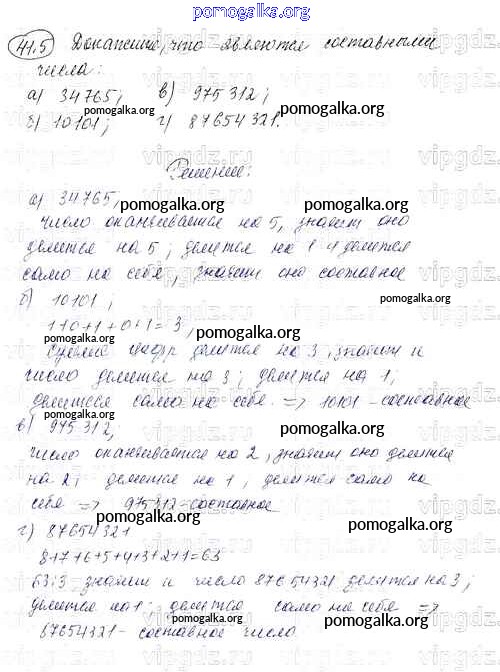 pomogalka.org
41.5 Докажите, что являются составными
числа:
а) 34765; в) 975312;
pomogalka.org
б) 10101; г) 87654321.
Решение:
а) 34765, pomogalka.org
число оканчивается на 5, значит оно
делится на 5; делится на 1 и делится
само на себя, значит оно составное
б) 10101; pomogalka.org
1+0+1+0+1=3,
pomogalka.org
сумма цифр делится на 3, значит и
число делится на 3; делится на 1;
делится само на себя => 10101 - составное
pomogalka.org
в) 975312;
число оканчивается на 2, значит оно делится
на 2; делится на 1, делится само на
себя => 975312-составное
pomogalka.org
г) 87654321
8+7+6+5+4+3+2+1=63
63:3 значит и число 87654321 делится на 3;
делится на 1; делится само на себя =>
87654321- составное число
pomogalka.org
pomogalka.org